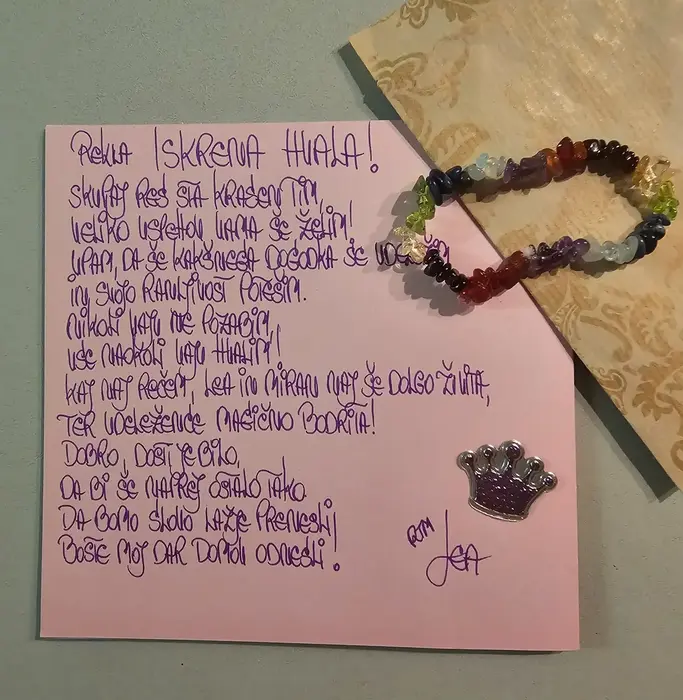 REKLA ISKRENA HVALA!
SKUPAJ RES STA KRASEN TIM,
VELIKO USPEHOV VAMA ŠE ŽELIM!
UPAM, DA ŠE KAKŠNEGA DOGODKA SE UDELEŽIM
IN SVOJO RANLJIVOST POTEŠIM.
NIKOLI VAJU NE POZABIM,
VSE NAOKOLI VAJU HVALIM!
KAJ NAJ REČEM, LEA IN MIRAN NAJ ŠE DOLGO ŽIVITA,
TER UDELEŽENCE MAGIČNO BODRITA!
DOBRO, DOST JE BILO,
DA BI ŠE NAPREJ OSTALO TAKO.
DA BOMO SLOVO LAŽJE PRENESLI,
BOSTE MOJ DAR DOMOV ODNESLI!
LEA